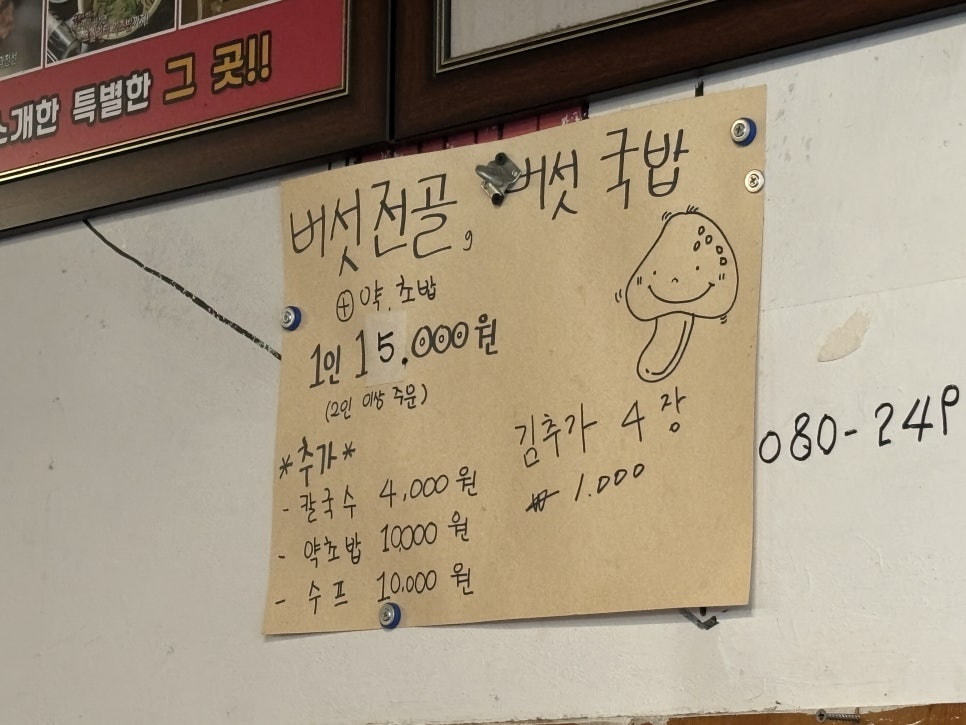 소개한 특별한 그 곳!!
버섯전골, 버섯 국밥
⊕ 약.초밥
1인 15.000원
(2인 이상 주문)
*추가*
- 칼국수 4,000원
- 약초밥 10,000 원
- 수프 10.000 원
김추가 4장
₩ 1.000
080-249